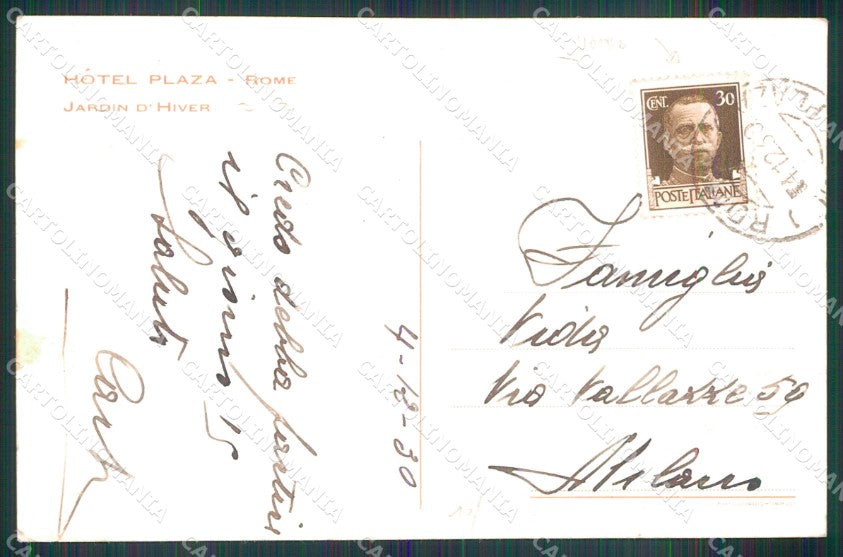 HÔTEL PLAZA - ROME
JARDIN D'HIVER
Credo debba partire
il giorno 15
Saluti
4-12-30
CENT. 30
POSTE ITALIANE
Famiglia
Vida
Via Vallazze 59
Milano
CARTOLINOMANIA